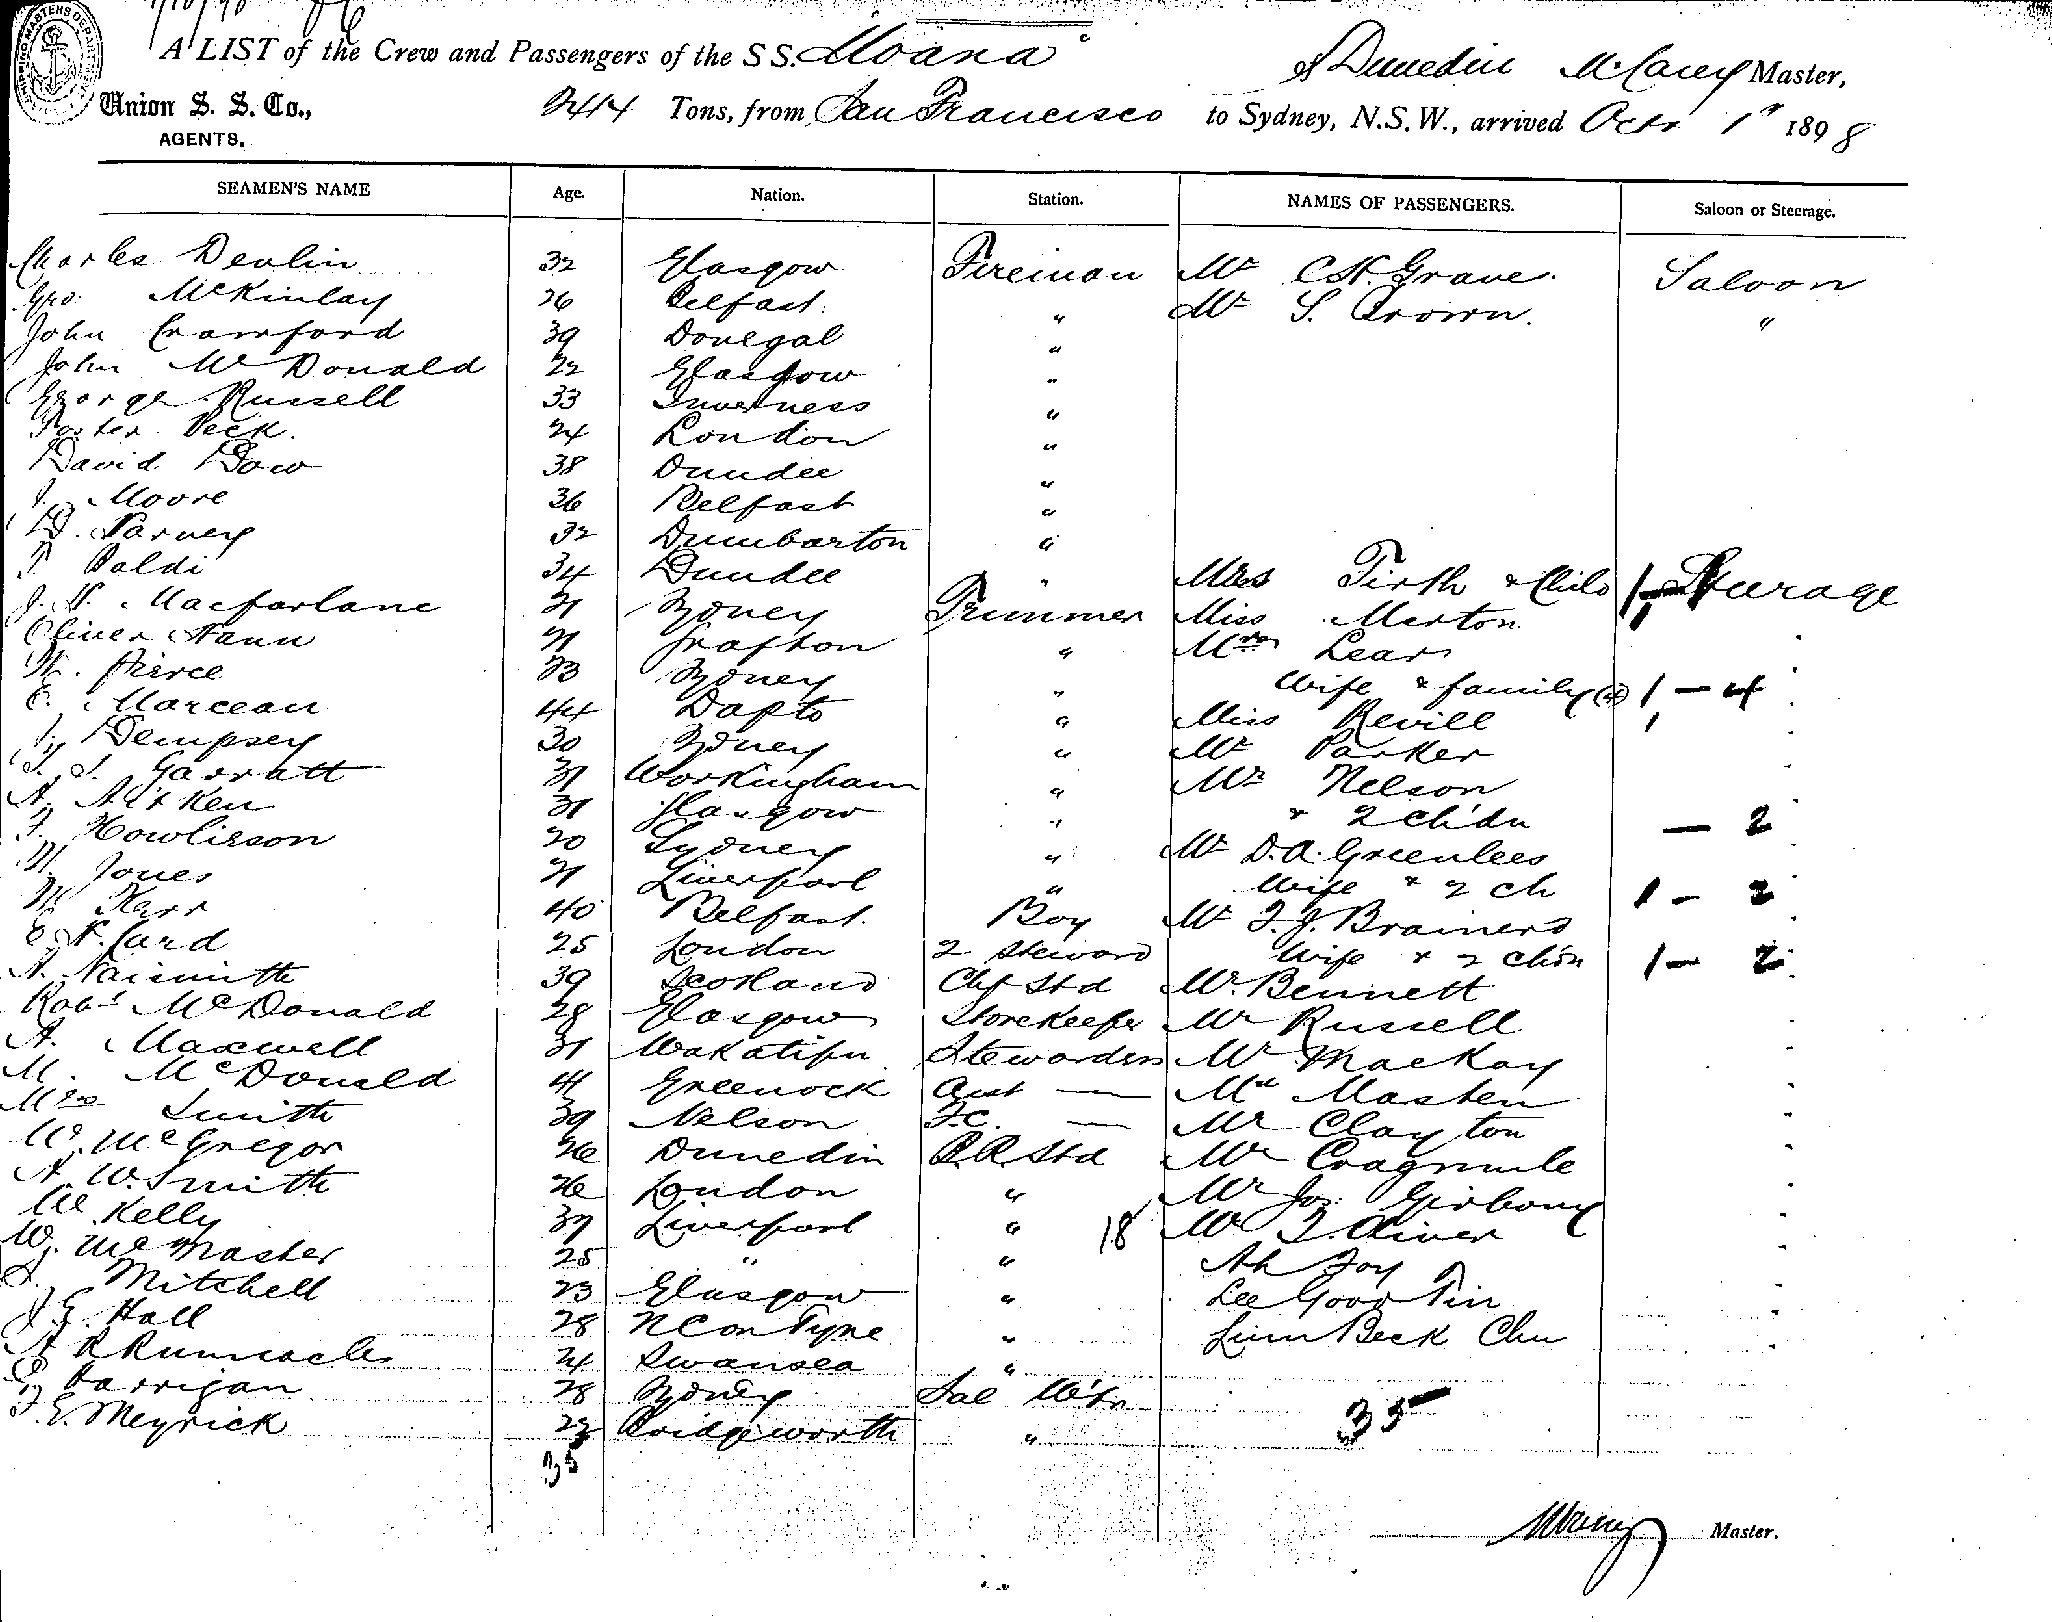 A LIST of the Crew and Passengers of the S S. Moana of Dunedin M. Carey Master,
Union S. S. Co., 2414 Tons, from San Francisco to Sydney, N.S.W., arrived Octr 1st 1898
AGENTS.
SEAMEN'S NAME Age. Nation. Station. NAMES OF PASSENGERS. Saloon or Steerage.
Charles Devlin 32 Glasgow Fireman Mr C.H. Grave Saloon
Geo. McKinlay 26 Belfast " Mr S. Crown "
John Crawford 39 Donegal "
John McDonald 22 Glasgow "
George Russell 33 Inverness "
Foster Peck 24 London "
David Dow 38 Dundee "
J. Moore 36 Belfast "
D. Varney 32 Dumbarton "
Baldi 34 Dundee " Mrs Firth & Child 1 Steerage
J. N. Macfarlane 21 Sydney Trimmer Miss Merton
Oliver Nann 21 Grafton " Lear
W. Pierce 23 Sydney " Wife & family (4) 1 - 4
E. Marceau 44 Dapto " Miss Revill
J. Dempsey 30 Sydney " Mr Parker
Garratt 31 Workingham " Mr Nelson
A. Aitken 31 Glasgow " & 2 chdn - 2
F. Howlisson 20 Sydney " Mr D.A. Greenlees
W. Jones 21 Liverpool " Wife & 2 ch 1 - 2
W. Kerr 40 Belfast Boy Mr F. J. Brainerd
Card 25 London 2 Steward Wife & 2 chdn 1 - 2
A. Naismith 39 Scotland Chf Std Mr Bennett
Robt McDonald 28 Glasgow Storekeeper Mr Russell
A. Maxwell 31 Wakatipu Stewardess Mr Mackay
M. McDonald 41 Greenock Asst — Mr Masten
Mrs Smith 39 Nelson F.C. — Mr Clayton
W. McGregor 26 Dunedin B.R. Std Mr
A. W. Smith 26 London " Mr Jos.
W. Kelly 39 Liverpool " 18 Mr T. Oliver
W. McMaster 25 " " Ah Foy
Mitchell 23 Glasgow " Lee Goot Tin
J. G. Hall 28 N C on Tyne " Lum Beck Chu
A. R Rumacles 24 Swansea "
Harrigan 28 Sydney Sal Wtr
F. E. Meyrick 22 Bridgeworth " 35
35
M Carey Master.